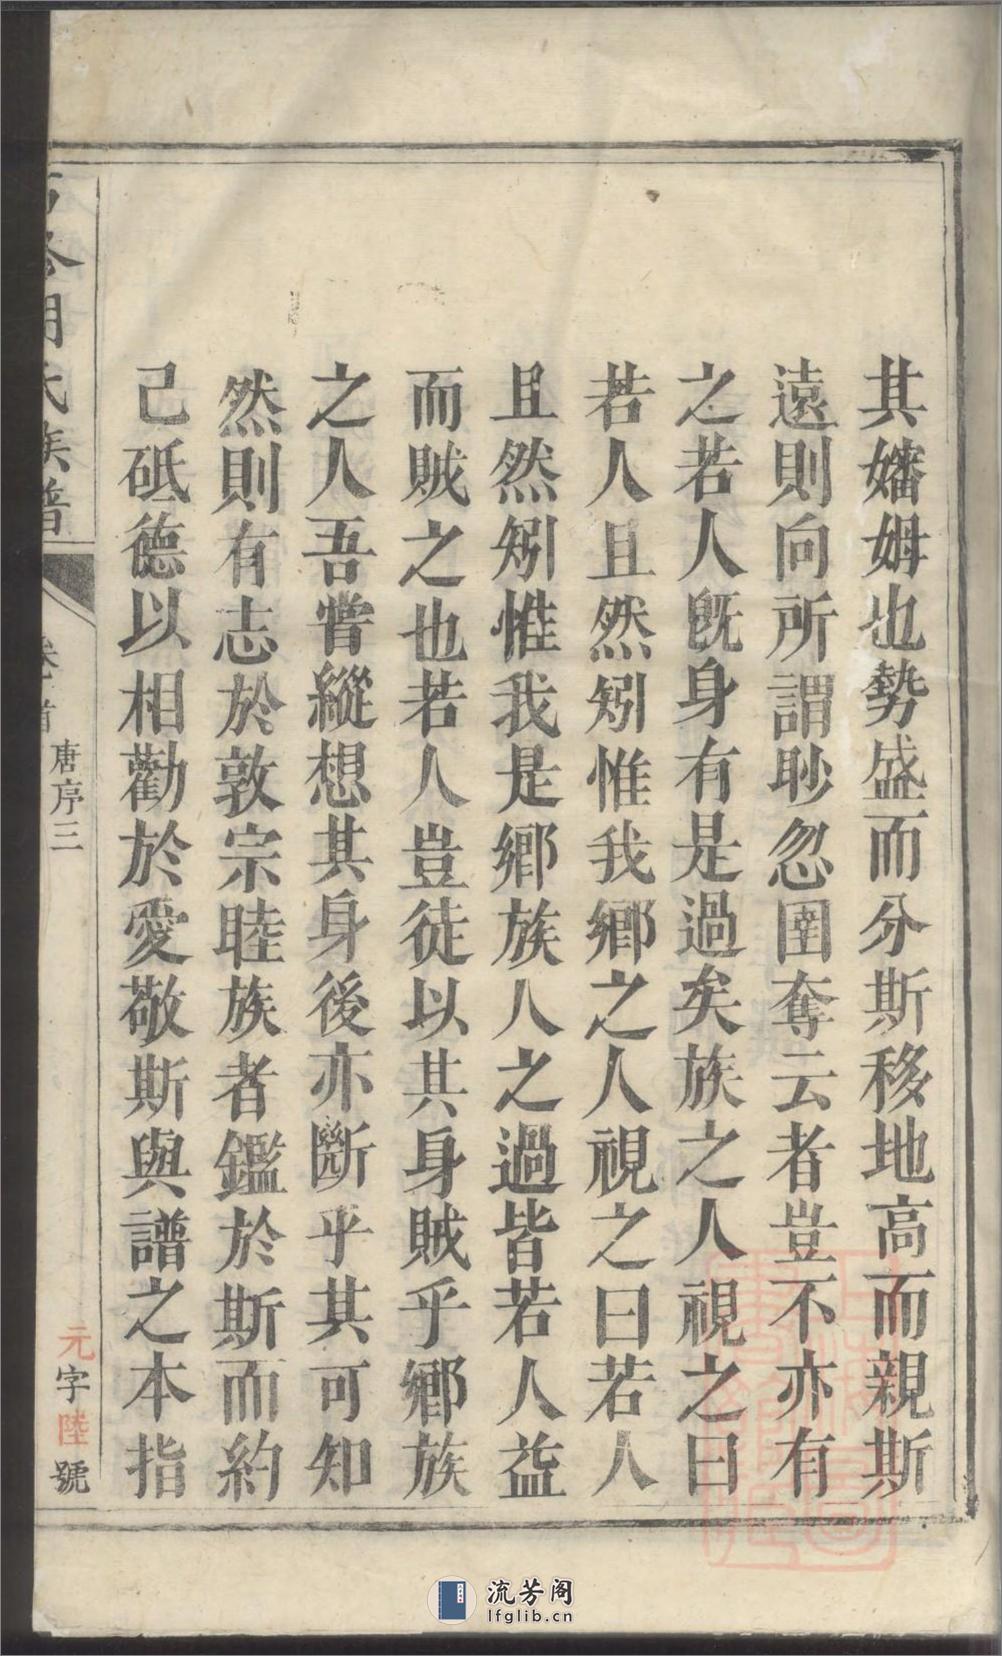 其嬸姆也勢盛而分斯移地高而親斯
遠則向所謂眇忽圉奪云者豈不亦有
之若人旣身有是過矣族之人視之曰
若人且然矧惟我鄉之人視之曰若人
且然矧惟我是鄉族人之過皆若人益
而賊之也若人豈徒以其身賊乎鄉族
之人吾嘗縱想其身後亦斷乎其可知
然則有志於敦宗睦族者鑑於斯而約
己砥德以相勸於愛敬斯與譜之本指
氏族譜
卷首
唐序三
元字陸號
流芳阁
lfglib.cn